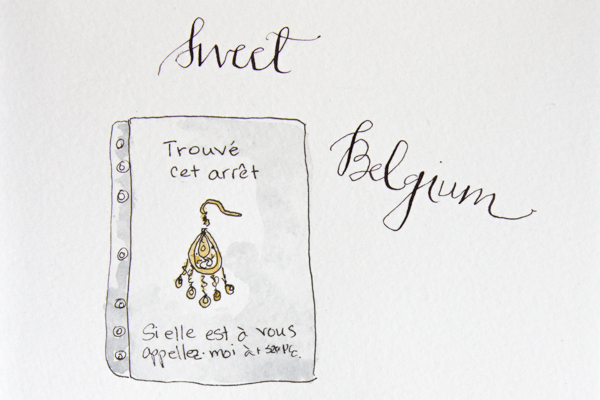 Sweet
Belgium
Trouvé
cet arrêt
Si elle est à vous
appellez-moi à